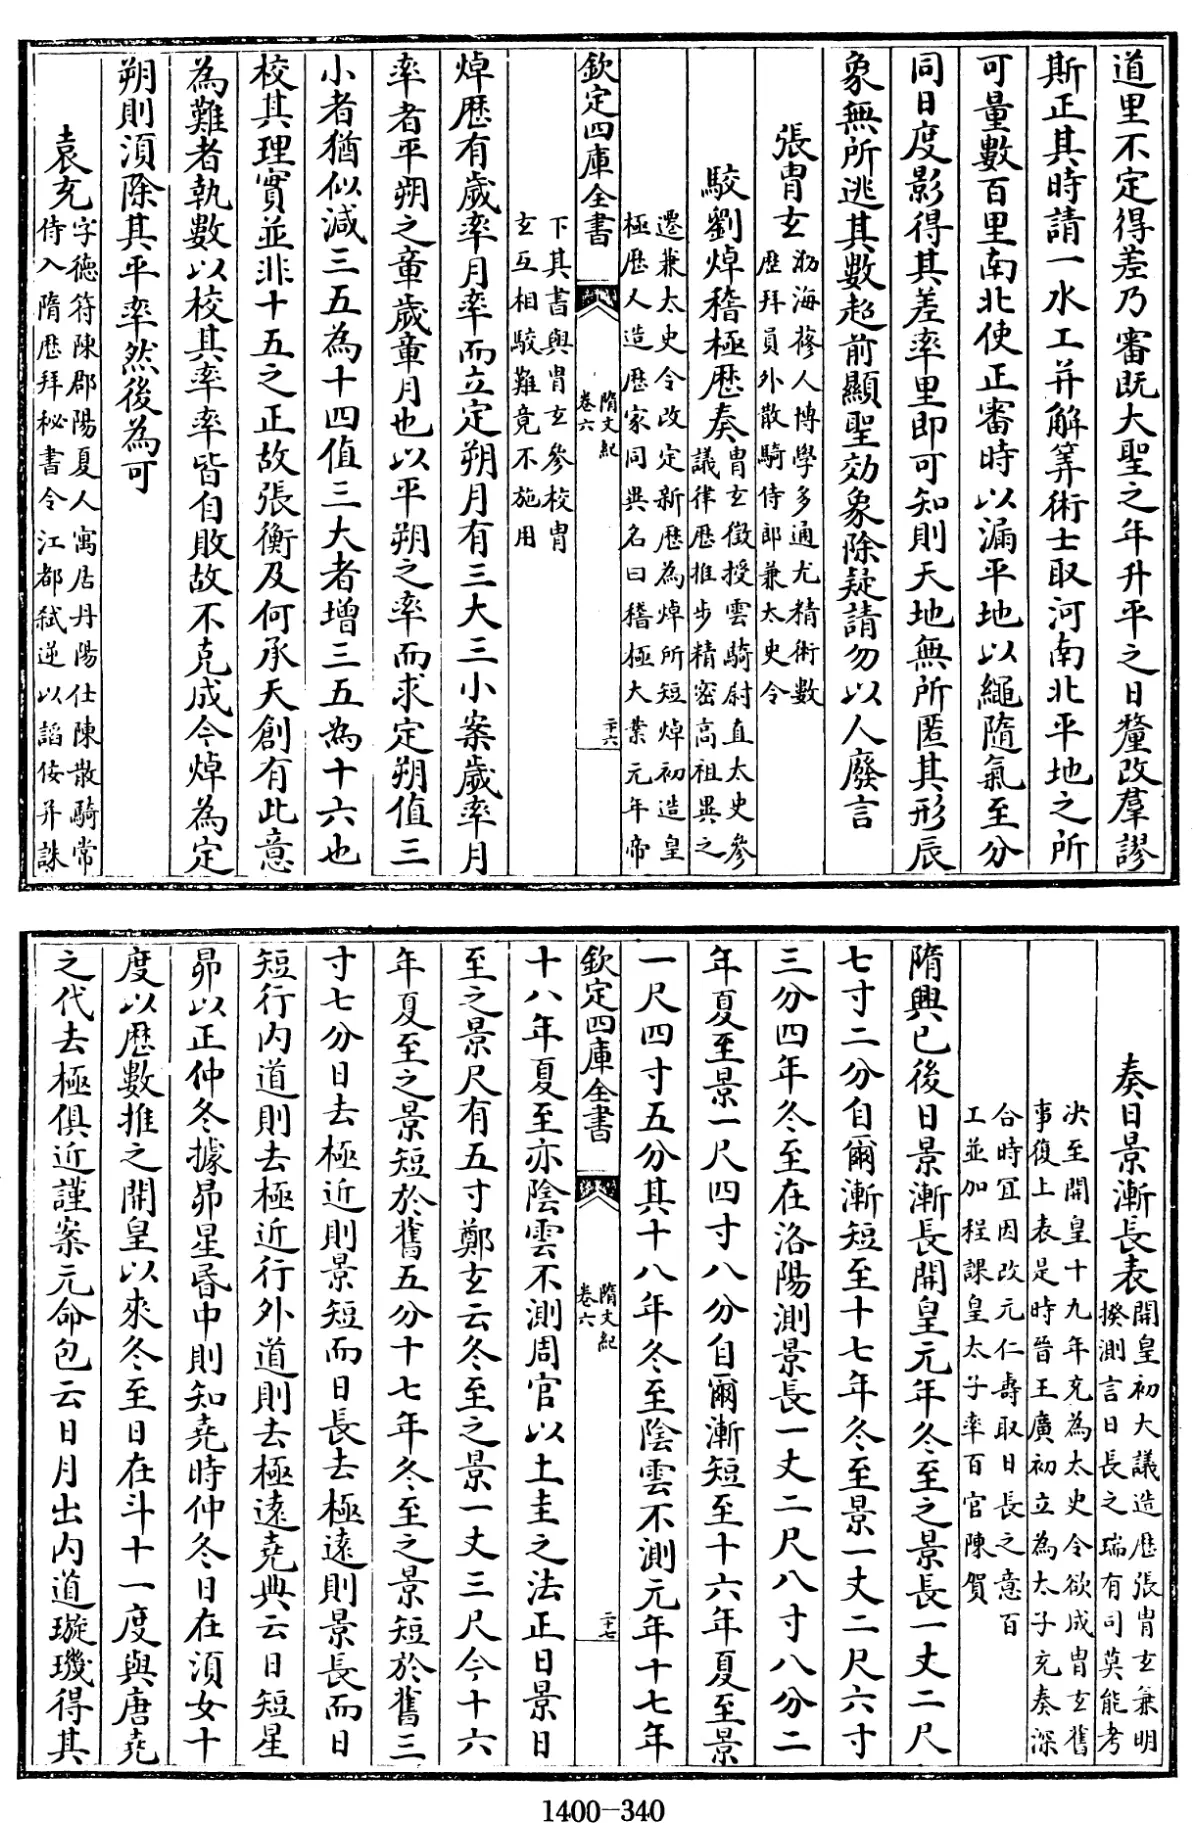 道里不定得差乃審既大聖之年升平之日釐改羣謬
斯正其時請一水工并解筭術士取河南北平地之所
可量數百里南北使正審時以漏平地以繩隨氣至分
同日度影得其差率里即可知則天地無所匿其形辰
象無所逃其數超前顯聖効象除疑請勿以人廢言
張胄玄
渤海蓨人博學多通尤精術數
歴拜員外散騎侍郎兼太史令
駮劉焯稽極歴奏
胄玄徴授雲騎尉直太史參
議律歴推步精密高祖異之
遷兼太史令改定新歴為焯所短焯初造皇
極歴人造歴家同異名曰稽極大業元年帝
下其書與胄玄參校胄
玄互相駮難竟不施用
欽定四庫全書
隋文紀
卷六
二十六
焯歴有歲率月率而立定朔月有三大三小案歲率月
率者平朔之章歲章月也以平朔之率而求定朔值三
小者猶似減三五為十四值三大者增三五為十六也
校其理實並非十五之正故張衡及何承天創有此意
為難者執數以校其率率皆自敗故不克成今焯為定
朔則須除其平率然後為可
袁充
字德符陳郡陽夏人寓居丹陽仕陳散騎常
侍入隋歴拜秘書令江都弑逆以謟佞并誅
奏日景漸長表
開皇初大議造歴張胄玄兼明
揆測言日長之瑞有司莫能考
决至開皇十九年充為太史令欲成胄玄舊
事復上表是時晉王廣初立為太子充奏深
合時冝因改元仁壽取日長之意百
工並加程課皇太子率百官陳賀
隋興已後日景漸長開皇元年冬至之景長一丈二尺
七寸二分自爾漸短至十七年冬至景一丈二尺六寸
三分四年冬至在洛陽測景長一丈二尺八寸八分二
年夏至景一尺四寸八分自爾漸短至十六年夏至景
一尺四寸五分其十八年冬至陰雲不測元年十七年
欽定四庫全書
隋文紀
卷六
二十七
十八年夏至亦陰雲不測周官以土圭之法正日景日
至之景尺有五寸鄭玄云冬至之景一丈三尺今十六
年夏至之景短於舊五分十七年冬至之景短於舊三
寸七分日去極近則景短而日長去極遠則景長而日
短行内道則去極近行外道則去極遠堯典云日短星
昴以正仲冬據昴星昏中則知堯時仲冬日在須女十
度以歴數推之開皇以來冬至日在斗十一度與唐堯
之代去極俱近謹案元命包云日月出内道璇璣得其
1400-340